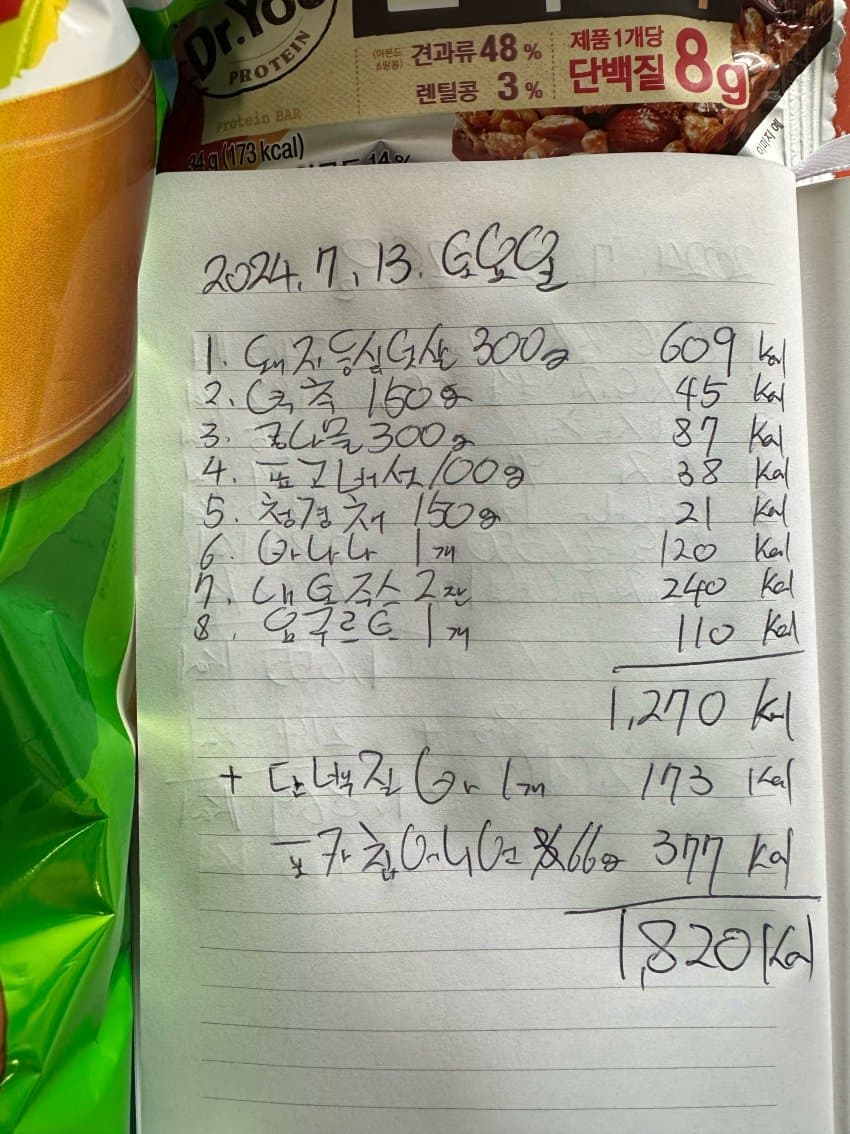 Dr.You
PROTEIN
Protein BAR
(아몬드 &땅콩) 견과류 48 %
렌틸콩 3 %
제품 1개당
단백질 8g
34 g (173 kcal)
14%
이미지 예
2024. 7. 13. 토요일
1. 돼지등심덧살 300g 609 Kcal
2. 150g 45 Kcal
3. 콩나물 300g 87 Kcal
4. 표고버섯 100g 38 Kcal
5. 청경채 150g 21 Kcal
6. 바나나 1개 120 Kcal
7. 주스 2잔 240 Kcal
8. 요구르트 1개 110 Kcal
1,270 Kcal
+ 단백질 바 1개 173 Kcal
포카칩어니언 66g 377 Kcal
1,820 Kcal